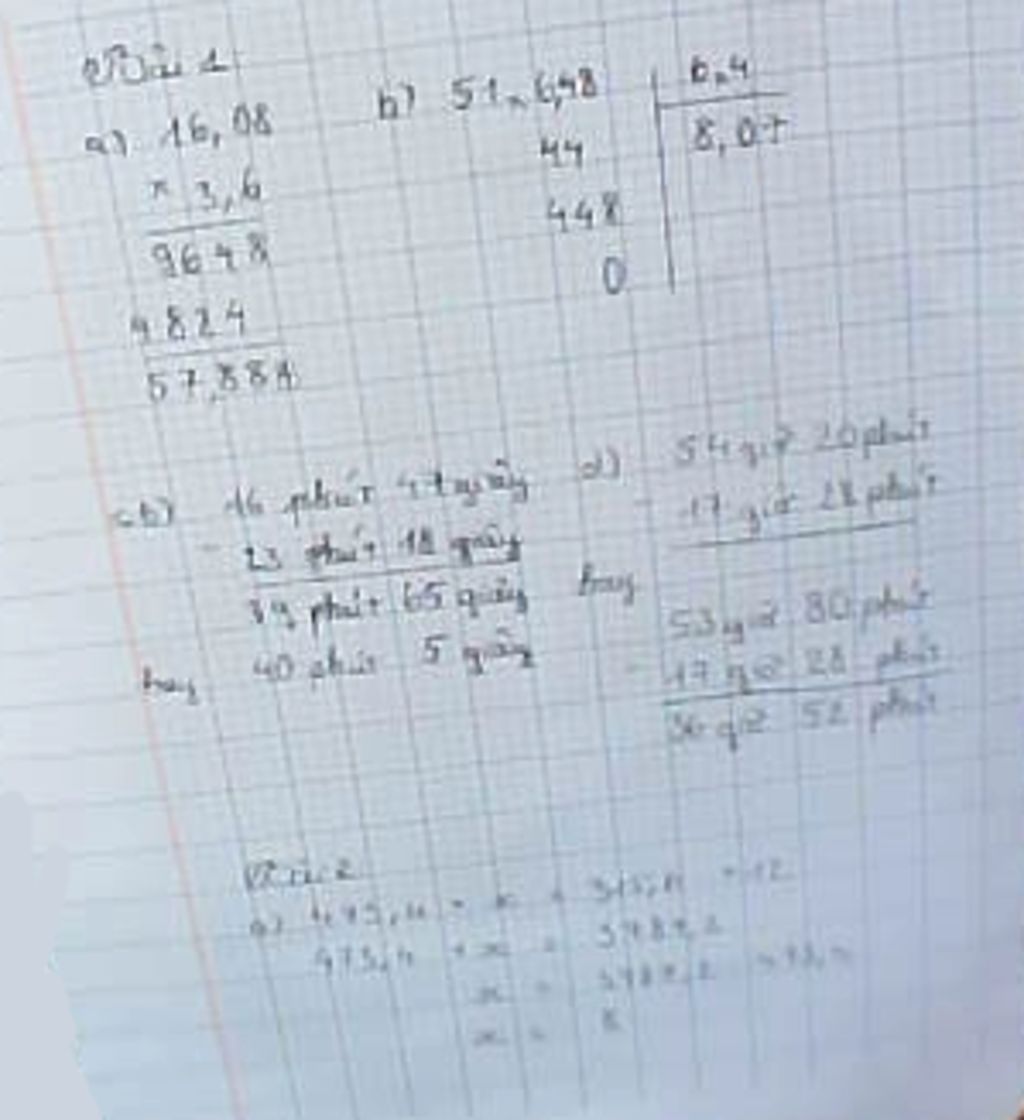 Bài 1
a) 16,08
× 3,6
9648
4824
57,888
b) 51,6,48 6,4
44 8,07
448
0
16 phút 47 giây
23 phút 18 giây
39 phút 65 giây
hay 40 phút 5 giây
d) 54 giờ 20 phút
17 giờ 28 phút
hay 53 giờ 80 phút
- 17 giờ 28 phút
36 giờ 52 phút
Bài 2
a)
473,4 × x =
x =
x = 8